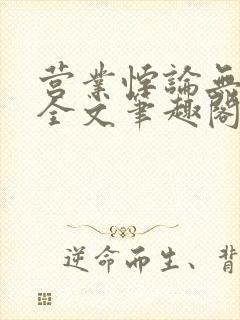 营业悖論無
全文筆趣閣
逆命而生、背